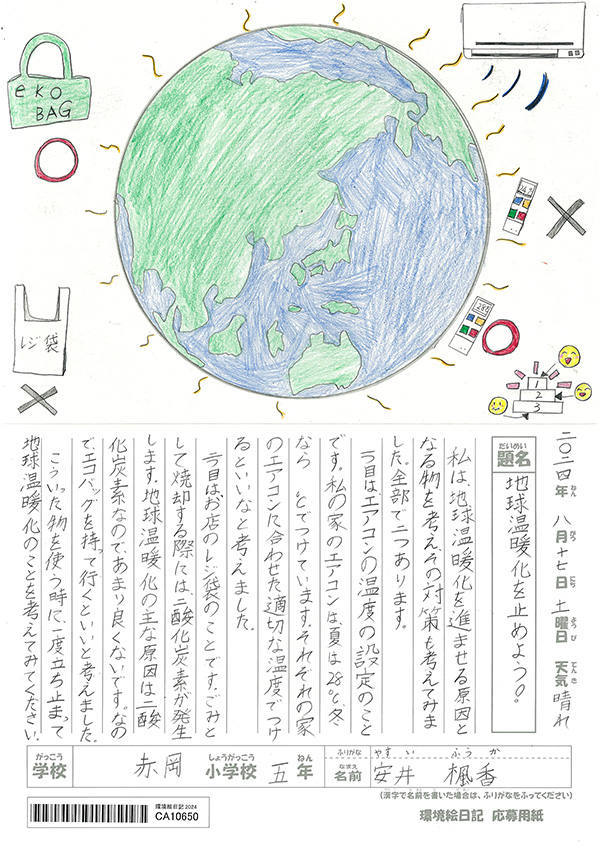 eKO
BAG
レジ袋
1
2
3
二〇二四年ねん 八月がつ十七日にち 土曜日ようび 天気てんき 晴れ
だいめい
題名
地球温暖化を止めよう!。
私は、地球温暖化を進ませる原因と
なる物を考え、その対策も考えてみま
した。全部で二つあります。
一つ目は、エアコンの温度の設定のこと
です。私の家のエアコンは、夏は28℃、冬
なら ℃でつけています。それぞれの家
のエアコンに合わせた適切な温度でつけ
るといいなと考えました。
二つ目は、お店のレジ袋のことです。ごみと
して焼却する際には、二酸化炭素が発生
します。地球温暖化の主な原因は二酸
化炭素なので、あまり良くないです。なの
で、エコバッグを持って行くといいと考えました。
こういった物を使う時に、一度立ち止まって
地球温暖化のことを考えてみてください。
がっこう
学校
赤岡
しょうがっこう
小学校
五
ねん
年
ふりがな
やすい ふうか
なまえ
名前
安井 楓香
(漢字で名前を書いた場合は、ふりがなをふってください)
環境絵日記 応募用紙
環境絵日記 2024
CA10650